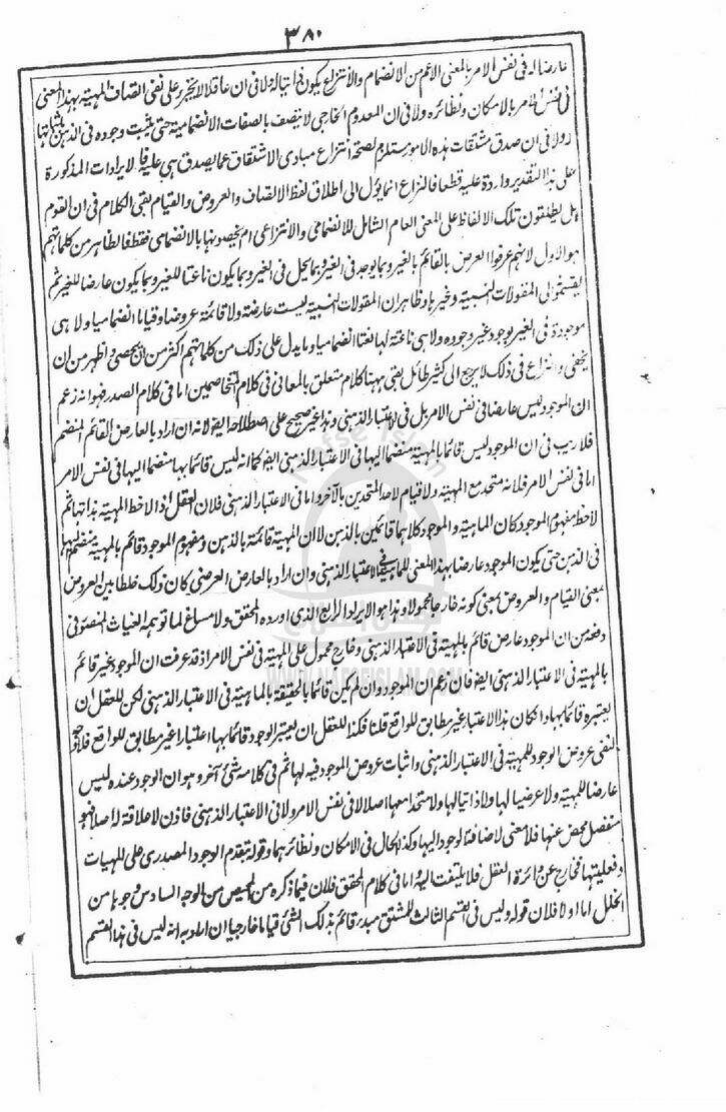 ٣٨٠
عارضا له فى نفس الامر بالمعنى الاعم من الانضمام والانتزاع يكون ذاتيا له ولا فى ان عاقلا لا يجترء على نفى اتصاف المهية بهذا المعنى
فى نفس الامر بالامكان ونظائره ولا فى ان المعدوم الخارجى لا يتصف بالصفات الانضمامية حتى يثبت وجوده فى الذهن
ولا فى ان صدق مشتقات هذه الامور مستلزم لصحة انتزاع مبادى الاشتقاق عما يصدق هى عليه لايرادات المذكورة
على هذا التقدير واردة عليه قطعا فالنزاع انما يؤل الى اطلاق لفظ الاتصاف والعروض والقيام بقى الكلام فى ان القوم
هل يطلقون تلك الالفاظ على المعنى العام الشامل للانضمامى والانتزاعى ام يخصونها بالانضمامى فقط فالظاهر من كلماتهم
هو الاول لانهم عرفوا العرض بالقائم بالغير وبما يوجد فى الغير وبما يحل فى الغير وبما يكون ناعتا للغير وبما يكون عارضا للغير ثم
يقسمونه الى المقولات النسبية وغيرها وظاهر ان المقولات النسبية ليست عارضة ولا قائمة عروضا وقياما انضماميا ولا هى
موجودة فى الغير بوجود غير وجوده ولا هى ناعتة لها نعتا انضماميا وما يدل على ذلك من كلماتهم اكثر من ان يحصى واظهر من ان
يخفى والنزاع فى ذلك لا يرجع الى كثير طائل بقى ههنا كلام متعلق بالمعانى فى كلام المتخاصمين اما فى كلام الصدر فهو انه زعم
ان الموجود ليس عارضا فى نفس الامر بل فى الاعتبار الذهنى وهذا غير صحيح على اصطلاحه ايضا لانه ان اراد بالعارض القائم المنضم
فلا ريب فى ان الموجود ليس قائما بالمهية منضما اليها فى الاعتبار الذهنى ايضا كما انه ليس قائما بها منضما اليها فى نفس الامر
اما فى نفس الامر فلانه متحد مع المهية ولا قيام لاحد المتحدين بالآخر واما فى الاعتبار الذهنى فلان العقل اذا لاحظ المهية بذاتها ثم
لاحظ مفهوم الموجود كان الماهية والموجود كلاهما قائمين بالذهن لا ان المهية قائمة بالذهن ومفهوم الموجود قائم بالمهية منضم اليها
فى الذهن حتى يكون الموجود عارضا بهذا المعنى للماهية فى الاعتبار الذهنى وان اراد بالعارض العرضى كان ذلك خلطا بين العروض
بمعنى القيام والعروض بمعنى كونه خارجا محمولا وهذا هو الايراد الرابع الذى اورده المحقق ولا مساغ لما توهمه الغياث المنصور فى
دفعه من ان الموجود عارض قائم بالمهية فى الاعتبار الذهنى وخارج محمول على المهية فى نفس الامر اذ قد عرفت ان الموجود غير قائم
بالمهية فى الاعتبار الذهنى ايضا فان زعم ان الموجود وان لم يكن قائما بالحقيقة بالماهية فى الاعتبار الذهنى لكن للعقل ان
يعتبره قائما بها وان كان هذا الاعتبار غير مطابق للواقع قلنا فكذا للعقل ان يعتبر الوجود قائما بها اعتبارا غير مطابق للواقع فلا وجه
لنفى عروض الوجود للمهية فى الاعتبار الذهنى واثبات عروض الموجود فيه لها ثم فى كلامه شئ آخر وهو ان الوجود عنده ليس
عارضا للمهية ولا عرضيا لها ولا ذاتيا لها ولا متحدا معها اصلا لا فى نفس الامر ولا فى الاعتبار الذهنى فاذن لا علاقة له اصلا فهو
منفصل محض عنها فلا معنى لاضافة الوجود اليها وكذا الحال فى الامكان ونظائرهما وقوله تقدم الوجود المصدرى على المهيات
وفعليتها فخارج عن دائرة العقل فلا يلتفت اليه واما فى كلام المحقق فلان فيما ذكره من المحيص من الوجه السادس وجوها من
الخلل اما اولا فلان قوله وليس فى القسم الثالث للمشتق مبدء قائم بذلك الشئ قياما خارجيا ان اراد به انه ليس فى هذا القسم
Nafse Islam
WWW.NAFSEISLAM.COM